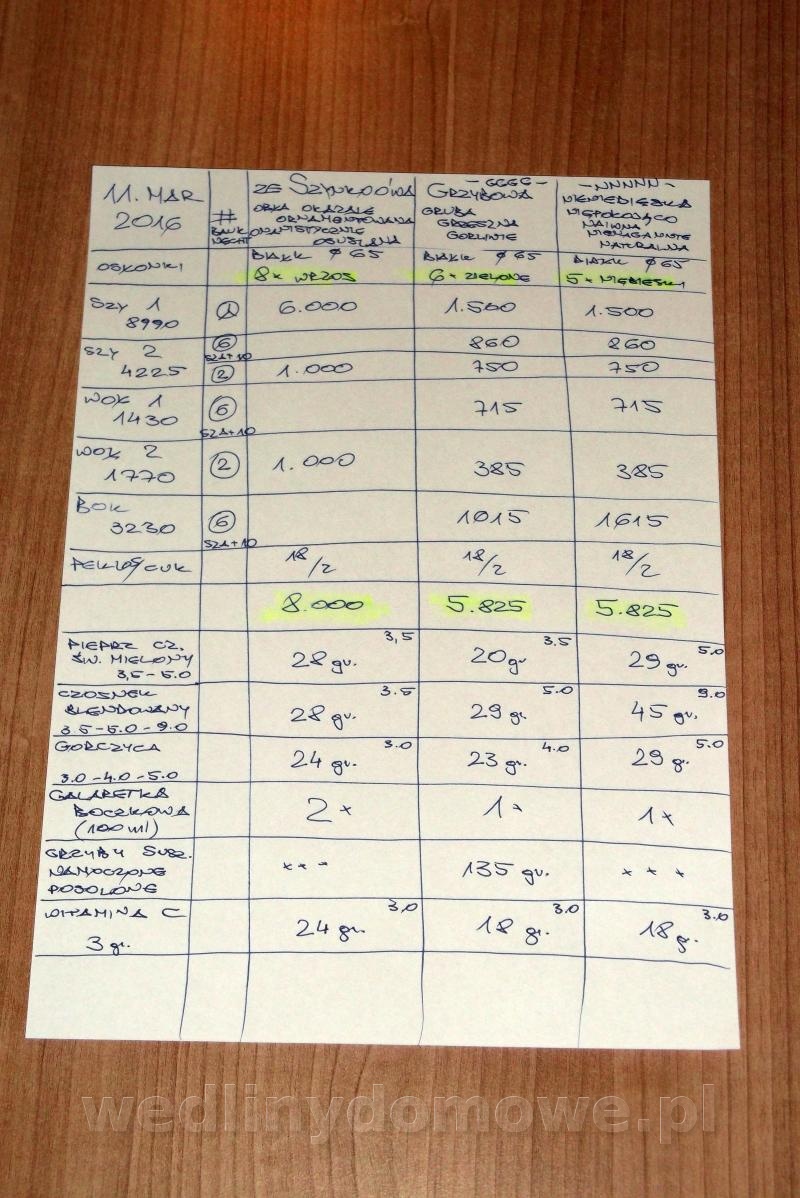 11. MAR
2016
#
ZE SZYNKOÓWA
OBKA OKAZALE
ORNAMENTOWANA
ONANISTYCZNIE
OSUSZANA
- GGGG -
GRZYBOWA
GRUBA
GRZESZNA
GORLIWIE
- NNNNN -
NIENIEBIESKA
NIEPOKOJĄCO
NAIWNA
NIENAGANNIE
NATURALNA
OSŁONKI
BIAŁK Ø 65
8 x WRZOS
BIAŁK Ø 65
6 x ZIELONE
BIAŁK Ø 65
5 x NIEBIESKI
SZY 1
8990
6.000
1.500
1.500
SZY 2
4225
6
SZA+10
860
860
2
1.000
750
750
WOŁ 1
1430
6
SZA+10
715
715
WOŁ 2
1770
2
1.000
385
385
BOK
3230
6
SZA+10
1615
1615
PEKLOS/CUK
18/2
18/2
18/2
8.000
5.825
5.825
PIEPRZ CZ.
ŚW. MIELONY
3,5 - 5.0
28 gr. 3,5
20 gr 3.5
29 gr. 5.0
CZOSNEK
BLENDOWANY
3.5 - 5.0 - 9.0
28 gr. 3.5
29 gr. 5.0
45 gr. 9.0
GORCZYCA
3.0 - 4.0 - 5.0
24 gr. 3.0
23 gr. 4.0
29 gr. 5.0
GALARETKA
BOCZKOWA
(100 ml)
2 x
1 x
1 x
GRZYBY SUSZ.
NAMOCZONE
POSOLONE
x x x
135 gr.
x x x
WITAMINA C
3 gr.
24 gr. 3.0
18 gr. 3.0
18 gr. 3.0
wedlinydomowe.pl